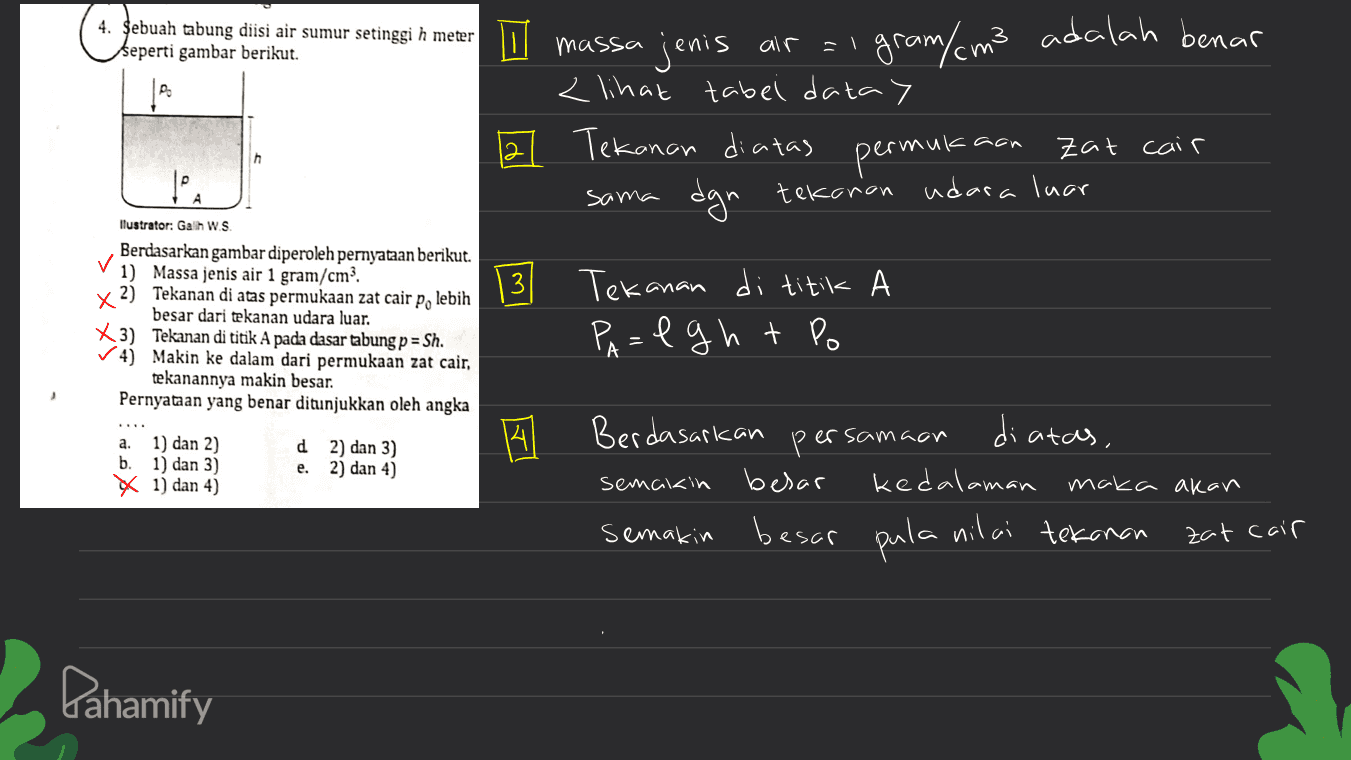 4. Sebuah tabung diisi air sumur setinggi h meter
seperti gambar berikut.
P₀
h
P
A
Ilustrator: Galih W.S.
Berdasarkan gambar diperoleh pernyataan berikut.
✓ 1) Massa jenis air 1 gram/cm³.
× 2) Tekanan di atas permukaan zat cair p₀ lebih
besar dari tekanan udara luar.
× 3) Tekanan di titik A pada dasar tabung p = Sh.
✓ 4) Makin ke dalam dari permukaan zat cair,
tekanannya makin besar.
Pernyataan yang benar ditunjukkan oleh angka
....
a. 1) dan 2)
b. 1) dan 3)
× 1) dan 4)
d 2) dan 3)
e. 2) dan 4)
1 massa jenis air = 1 gram/cm³ adalah benar
< lihat tabel data >
2 Tekanan diatas permukaan zat cair
sama dgn tekanan udara luar
3 Tekanan di titik A
P_A = ρgh + P₀
4 Berdasarkan persamaan diatas,
semakin besar kedalaman maka akan
semakin besar pula nilai tekanan zat cair
Pahamify